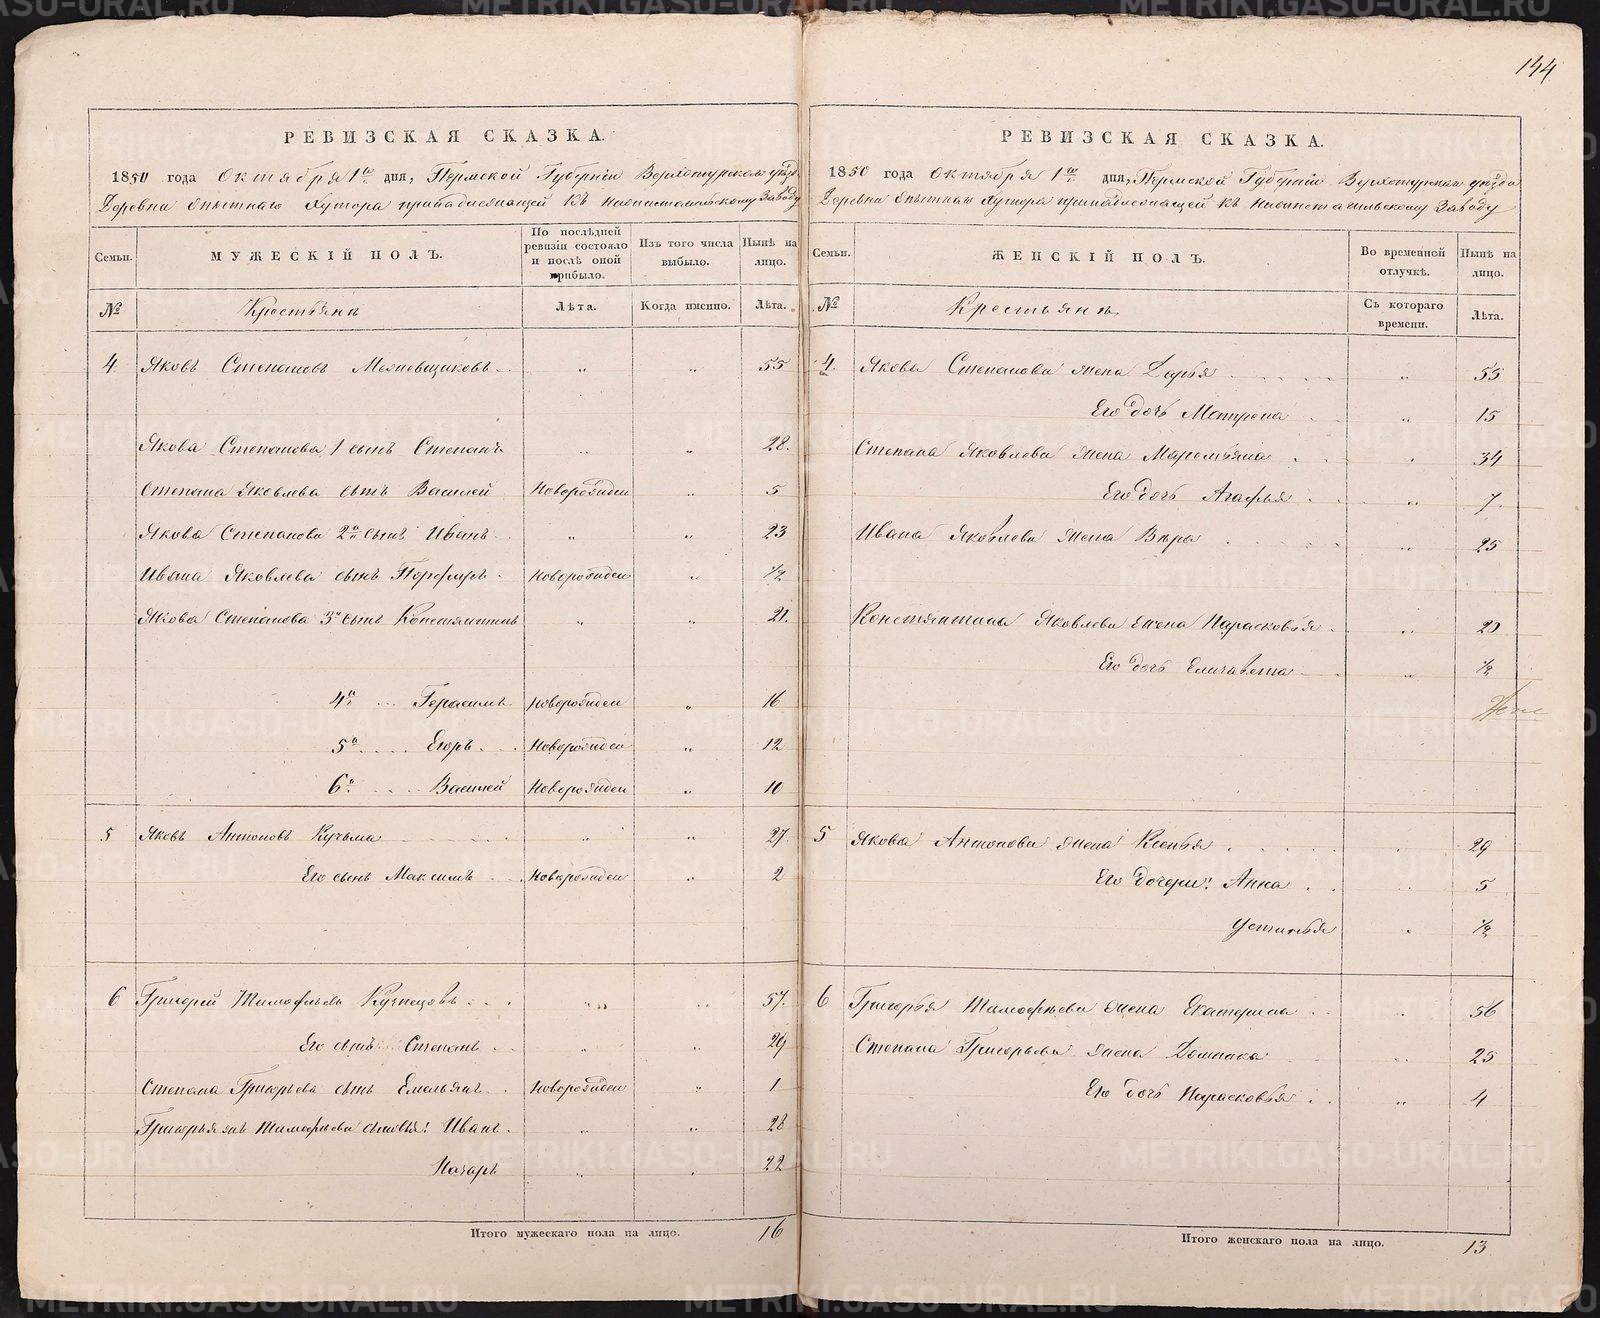 144
РЕВИЗСКАЯ СКАЗКА.
1850 года Октября 1го дня, Пермской Губерніи Верхотурскаго уѣзда
Деревни Опытнаго Хутора принадлежащей къ Нижнетагильскому Заводу
Семьи.
МУЖЕСКІЙ ПОЛЪ.
По послѣдней ревизіи состояло и послѣ оной прибыло.
Изъ того числа выбыло.
Нынѣ на лицо.
№
Крестьянъ
Лѣта.
Когда именно.
Лѣта.
4 Яковъ Степановъ „ „ 55
Якова Степанова 1 сынъ Степанъ „ „ 28.
Степана Яковлева сынъ Василей Новорожден „ 5
Якова Степанова 2й сынъ Иванъ „ „ 23
Ивана Яковлева сынъ Порфиръ Новорожден „ 1/2
Якова Степанова 3й сынъ Констянтинъ „ „ 21.
4й Герасимъ Новорожден „ 16
5й Егоръ Новорожден „ 12
6й Василей Новорожден „ 10
5 Яковъ Антоновъ Кузьма „ „ 27.
Его сынъ Максимъ Новорожден „ 2
6 Григорей Тимофѣевъ Кузнецовъ „ „ 57.
Его сынъ Степанъ „ „ 29
Степана Григорьева сынъ Емельянъ Новорожден „ 1
Григорья Тимофѣева сыновья: Иванъ „ „ 28
Назаръ „ „ 22
Итого мужескаго пола на лицо. 16
РЕВИЗСКАЯ СКАЗКА.
1850 года Октября 1го дня, Пермской Губерніи Верхотурскаго уѣзда
Деревни Опытнаго Хутора принадлежащей къ Нижнетагильскому Заводу
Семьи.
ЖЕНСКІЙ ПОЛЪ.
Во временной отлучкѣ.
Нынѣ на лицо.
№
Крестьянъ
Съ котораго времени.
Лѣта.
4. Якова Степанова жена Дарья „ 55
Его дочь Матрена „ 15
Степана Яковлева жена Маремьяна „ 34
Его дочь Агафья „ 7
Ивана Яковлева жена Вѣра „ 25
Констянтина Яковлева жена Парасковья „ 20
Его дочь Елизавета „ 1/2
5 Якова Антонова жена Ксенья „ 29
Его дочери: Анна „ 5
Устинья „ 1/2
6 Григорья Тимофѣева жена Екатерина „ 56
Степана Григорьева жена Домнина „ 25
Его дочь Парасковья „ 4
Итого женскаго пола на лицо. 13
METRIKI.GASO-URAL.RU